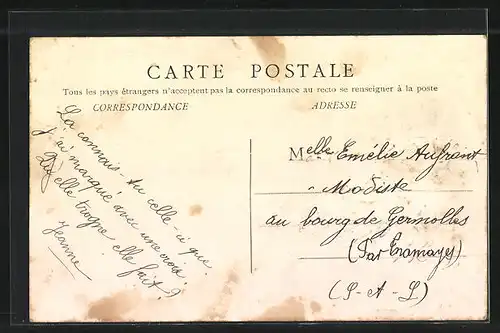 CARTE POSTALE
Tous les pays étrangers n'acceptent pas la correspondance au recto se renseigner à la poste
CORRESPONDANCE
ADRESSE
La connais-tu celle-ci que
j'ai marqué avec une croix.
Quelle trogne elle fait ?
Jeanne
Melle Emélie Aufrant
Modiste
au bourg de Germolles
(Par Tramayes)
(S-A-L)